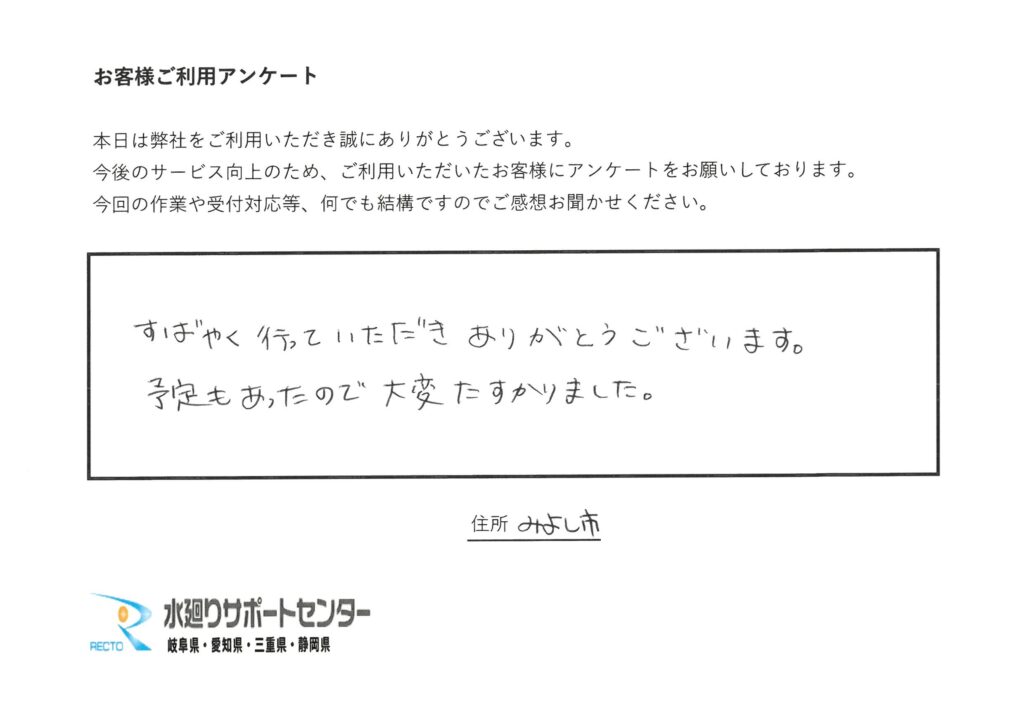 お客様ご利用アンケート
本日は弊社をご利用いただき誠にありがとうございます。
今後のサービス向上のため、ご利用いただいたお客様にアンケートをお願いしております。
今回の作業や受付対応等、何でも結構ですのでご感想お聞かせください。
すばやく行っていただきありがとうございます。
予定もあったので大変たすかりました。
住所 みよし市
RECTO
水廻りサポートセンター
岐阜県・愛知県・三重県・静岡県